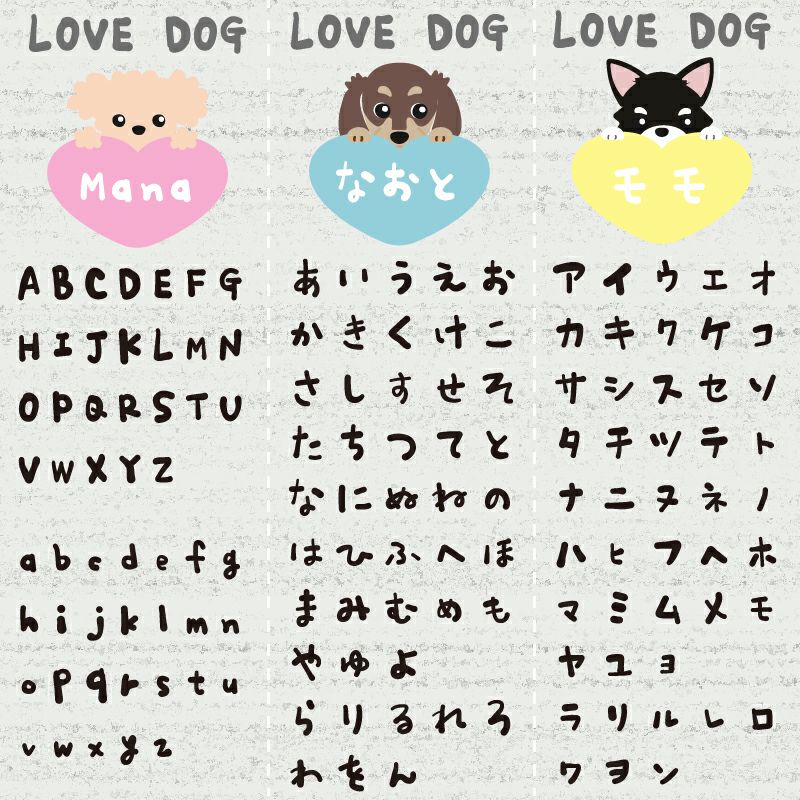 LOVE DOG
Mana
A B C D E F G
H I J K L M N
O P Q R S T U
V W X Y Z
a b c d e f g
h i j k l m n
o p q r s t u
v w x y z
LOVE DOG
なおと
あ い う え お
か き く け こ
さ し す せ そ
た ち つ て と
な に ぬ ね の
は ひ ふ へ ほ
ま み む め も
や ゆ よ
ら り る れ ろ
わ を ん
LOVE DOG
モモ
ア イ ウ エ オ
カ キ ク ケ コ
サ シ ス セ ソ
タ チ ツ テ ト
ナ ニ ヌ ネ ノ
ハ ヒ フ ヘ ホ
マ ミ ム メ モ
ヤ ユ ヨ
ラ リ ル レ ロ
ワ ヲ ン